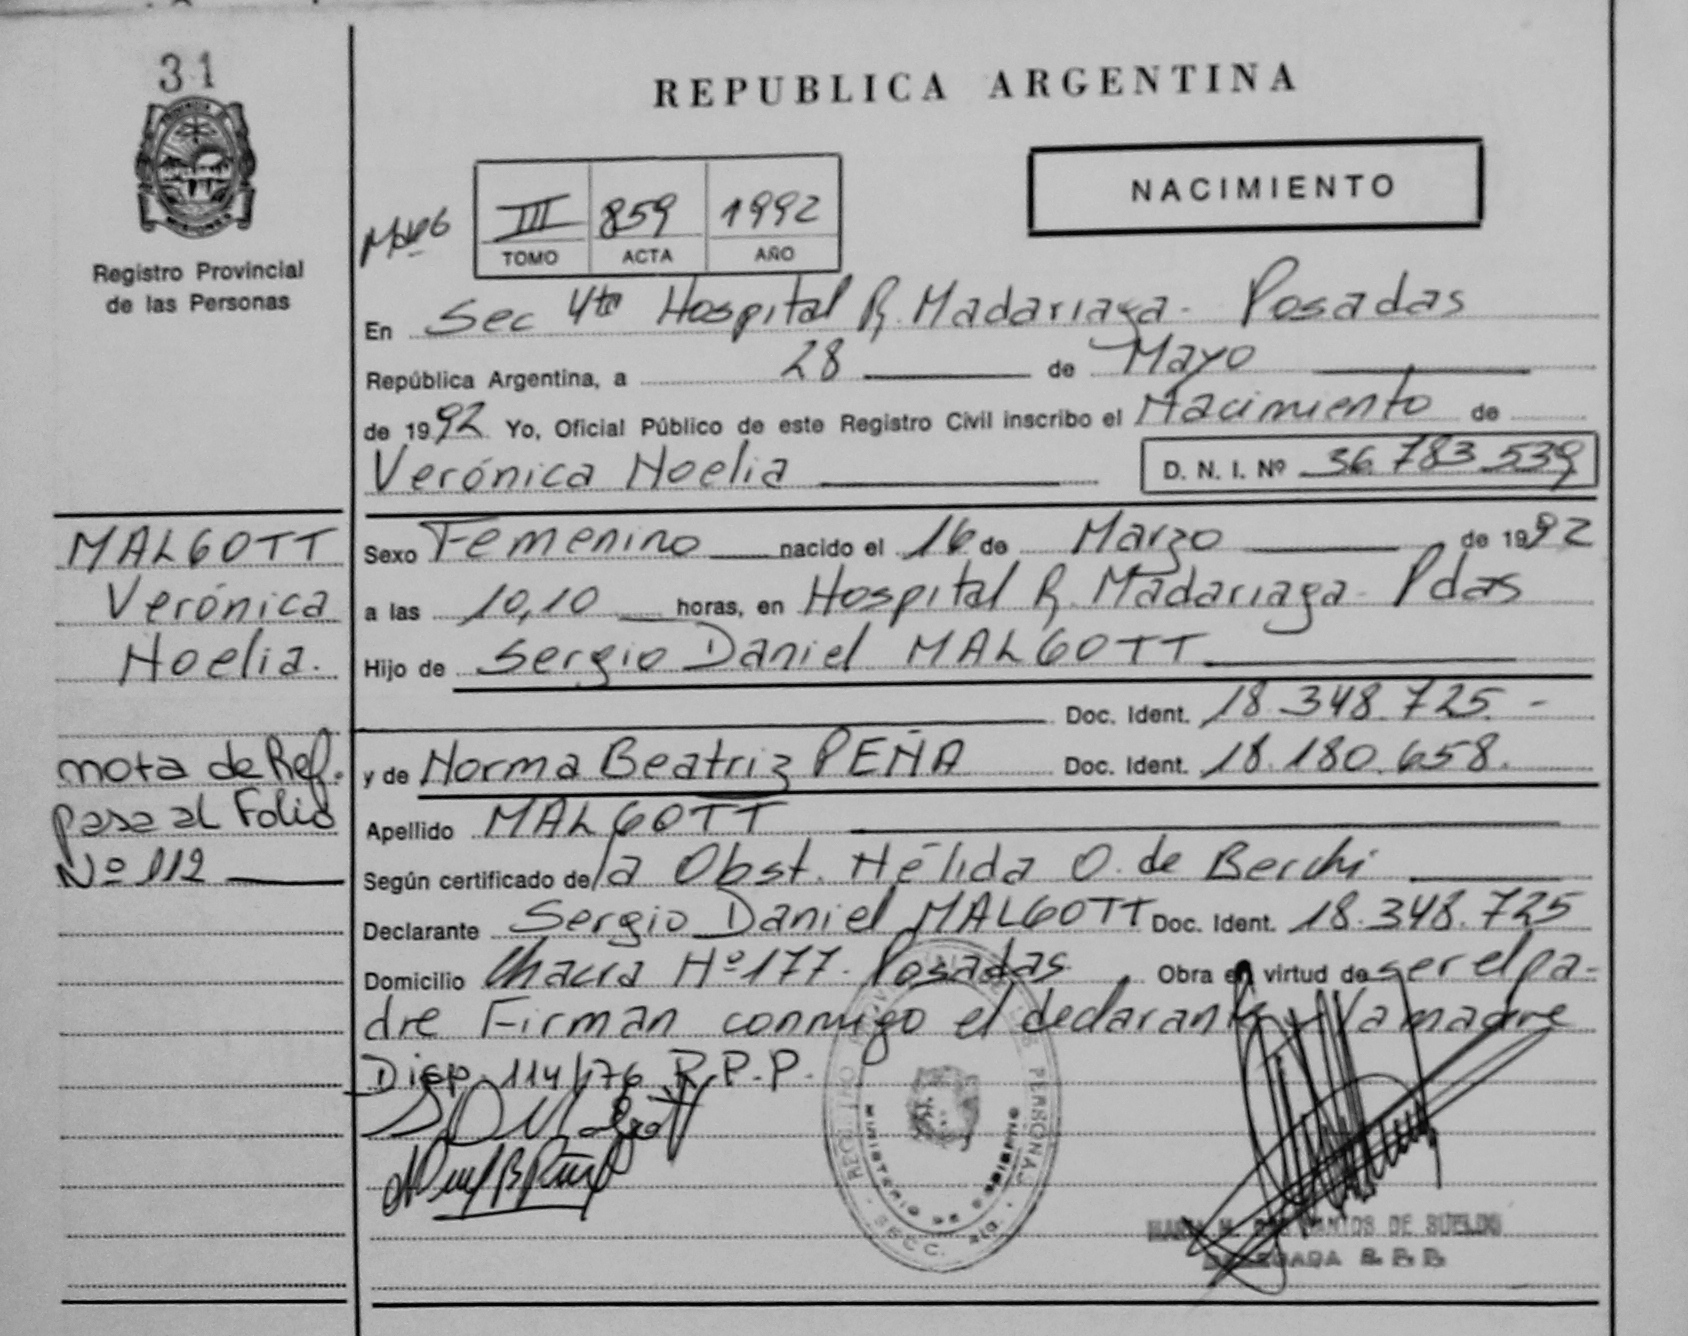 31
REPUBLICA ARGENTINA
NACIMIENTO
III 859 1992
TOMO ACTA AÑO
Registro Provincial
de las Personas
En Sec 4ta Hospital R. Madariaga - Posadas
República Argentina, a 28 de Mayo
de 1992 Yo, Oficial Público de este Registro Civil inscribo el Nacimiento de
Verónica Noelia D. N. I. Nº 36.783.539
MALGOTT
Verónica
Noelia.
Sexo Femenino nacido el 16 de Marzo de 1992
a las 10,10 horas, en Hospital R. Madariaga - Pdas
Hijo de Sergio Daniel MALGOTT
Doc. Ident. 18.348.725. -
y de Norma Beatriz PEÑA Doc. Ident. 18.180.658.
nota de Ref.
pasa al Folio
Nº 112
Apellido MALGOTT
Según certificado de la Obst. Nélida O. de Berchi
Declarante Sergio Daniel MALGOTT Doc. Ident. 18.348.725
Domicilio Chacra Nº 177. Posadas. Obra en virtud de ser el pa-
dre Firman conmigo el declarante y la madre
Disp. 114/76 R.P.P.
REGISTRO PROVINCIAL DE LAS PERSONAS
MINISTERIO DE GOBIERNO
DELEGADA